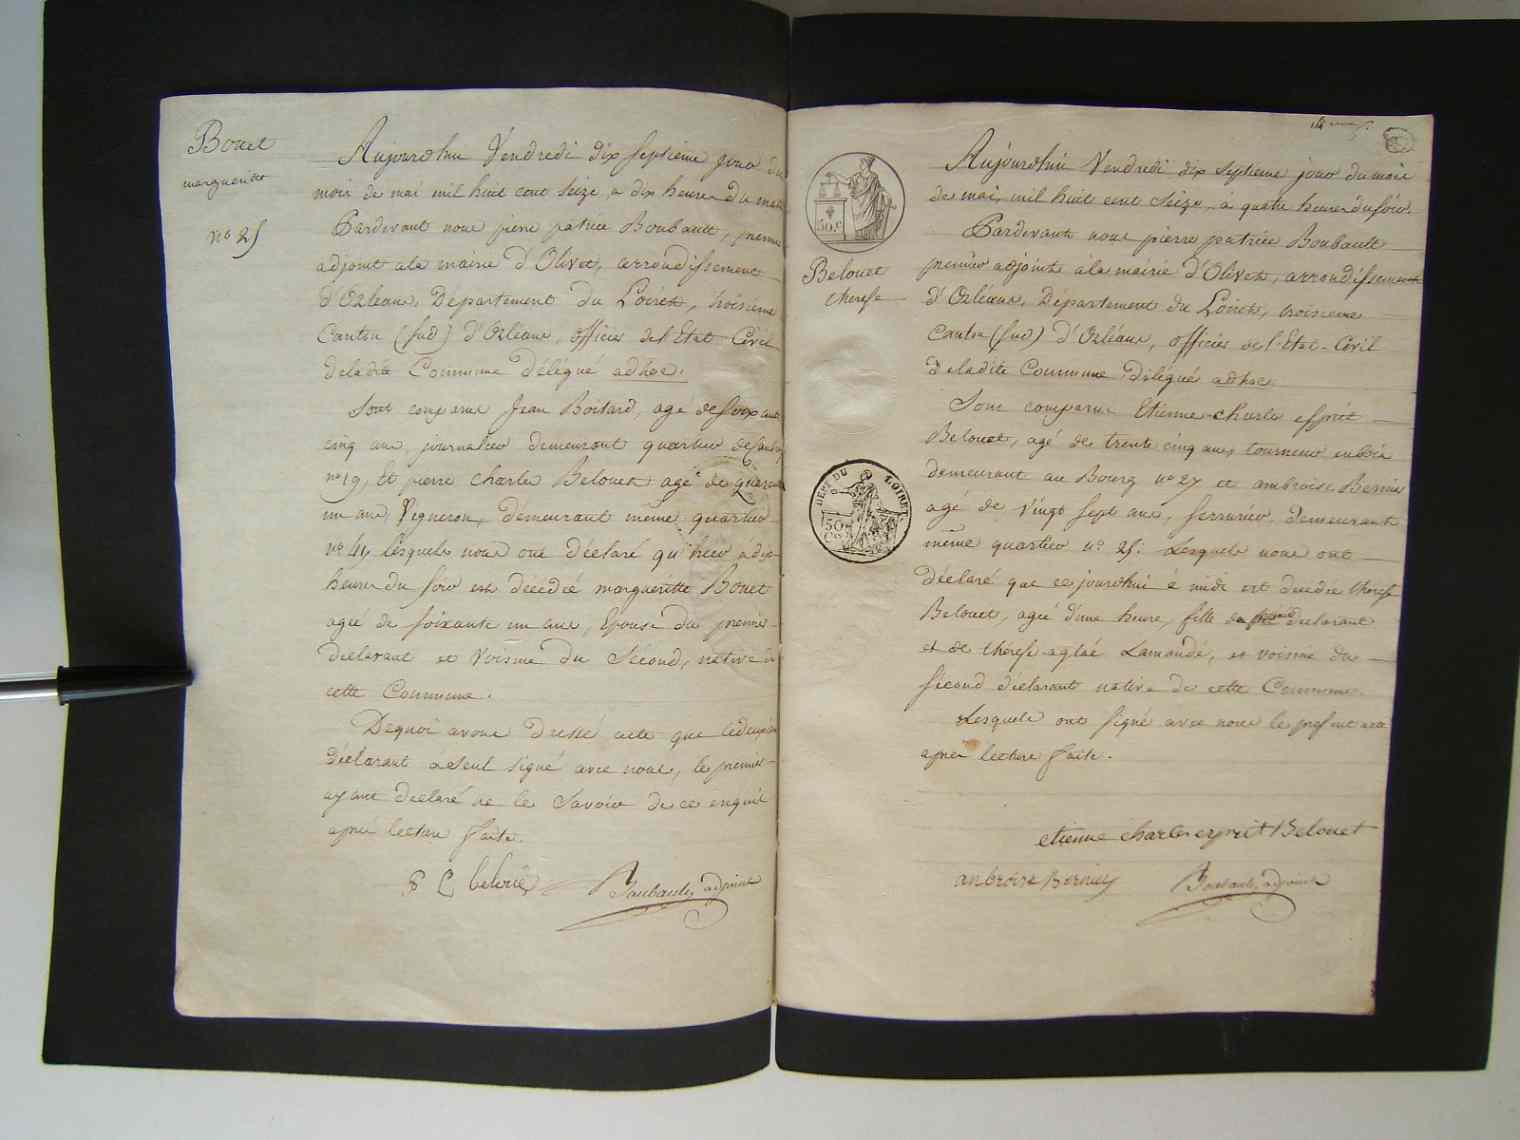 Bouet
margueritte
n° 25
Aujourdhui Vendredi dix septieme jour du
mois de mai mil huit cent Seize, a dix heures du matin
Pardevant nous pierre patrice Boubault, premier
adjoint a la mairie d'Olivet, arrondissement
d'Orléans, Département du Loiret, troisième
Canton (Sud) d'Orléans, officier de l'Etat Civil
de la dite Commune délégué adhoc.
Sont comparus Jean Boitard, agé de soixante
cinq ans, journalier demeurant quartier
n° 19, Et pierre charles Belouet agé de quarante
un ans, Vigneron, demeurant même quartier
n° 41, lesquels nous ont déclaré qu'hier à dix
heures du soir est décédée margueritte Bouet
agée de soixante un ans, Epouse du premier
déclarant et voisine du Sécond, native de
cette Commune.
Dequoi avons dressé acte que le deuxième
déclarant a seul signé avec nous, le premier
ayant déclaré ne le Savoir de ce enquis
après lecture faite.
P C belouet
Boubault, adjoint
DEPT DU LOIRET.
50 c
50
Belouet
therese
Aujourdhui Vendredi dix septieme jour du mois
de mai, mil huit cent Seize, à quatre heures du soir.
Pardevant nous pierre patrice Boubault
premier adjoint à la mairie d'Olivet, arrondissement
d'Orléans, Département du Loiret, troisieme
Canton (Sud) d'Orléans, officier de l'Etat-Civil
de ladite Commune délégué adhoc.
Sont comparus Etienne charles esprit
Belouet, agé de trente cinq ans, tourneur en bois
demeurant au Bourg n° 27 et ambroise Bernier
agé de Vingt sept ans, serrurier, demeurant
même quartier n° 25. Lesquels nous ont
déclaré que ce jourdhui à midi est décédée therese
Belouet, agée d'une heure, fille du premier déclarant
et de therese aglaé Lamandé, et voisine du
sécond déclarant native de cette Commune.
Lesquels ont signé avec nous le présent acte
après lecture faite.
etienne charles esprit Belouet
anbroise Bernier
Boubault, adjoint